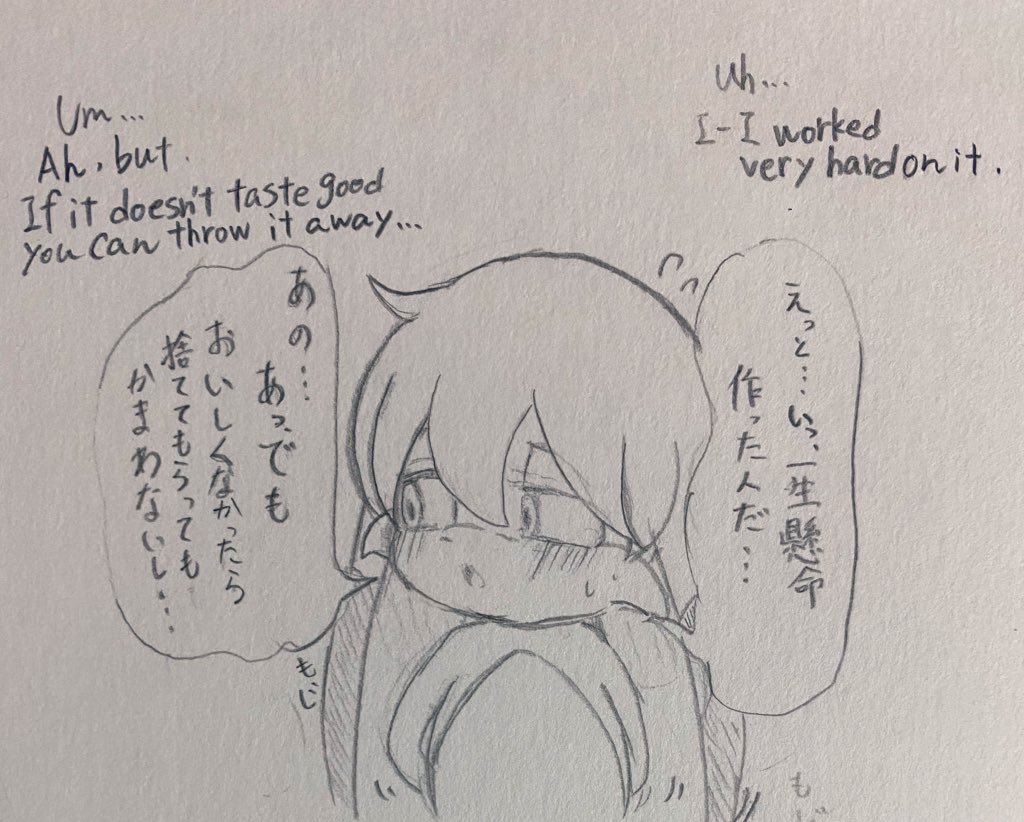 Uh...
I-I worked
very hard on it.
えっと…いっ、一生懸命
作った人だ…
Um...
Ah, but.
If it doesn't taste good
you can throw it away...
あの…
あっ、でも
おいしくなかったら
捨ててもらっても
かまわないし…
もじ
もじ